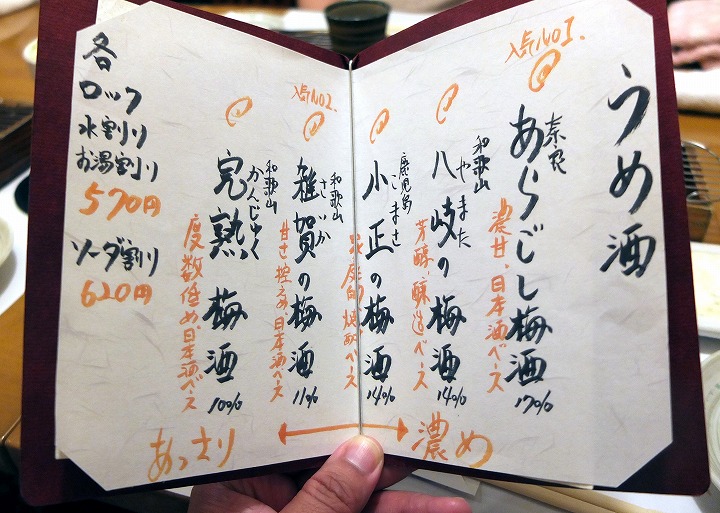 うめ酒
人気No1.
奈良
あらごし梅酒
17%
濃甘、日本酒ベース
和歌山
やまた
八岐の梅酒
14%
芳醇、醸造ベース
鹿児島
こまさ
小正の梅酒
14%
ベース
和歌山
さいか
人気No2.
雑賀の梅酒
11%
甘さ控え目、日本酒ベース
和歌山
かんじゅく
完熟梅酒
10%
度数低め、日本酒ベース
あっさり
濃め
各
ロック
水割り
お湯割り
570円
ソーダ割り
620円